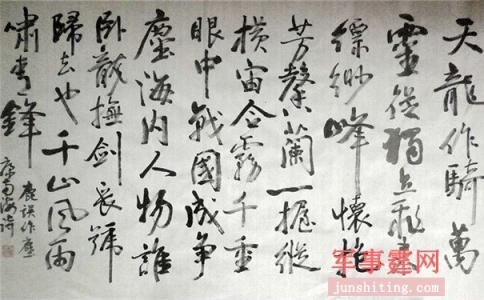 天龍作騎萬
靈從獨立飛来
縹緲峰懷抱
芳馨蘭一握縱
横宙合霧千重
眼中戰國成争
塵海内人物誰
卧龍撫劍長號
歸去也千山風雨
嘯青鋒
鹿誤作塵
康南海詩
军事霆网
junshiting.com